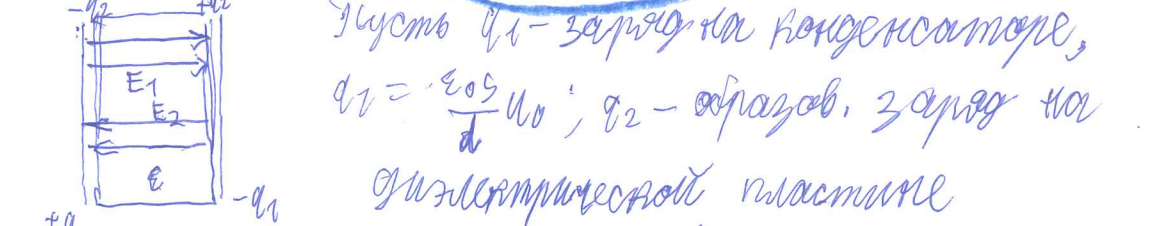 -q₂ +q₂
Пусть q₁ - заряд на конденсаторе,
E₁
q₁ = ε₀S/d U₀; q₂ - образов. заряд на
E₂
ε
диэлектрической пластине
+q -q₁